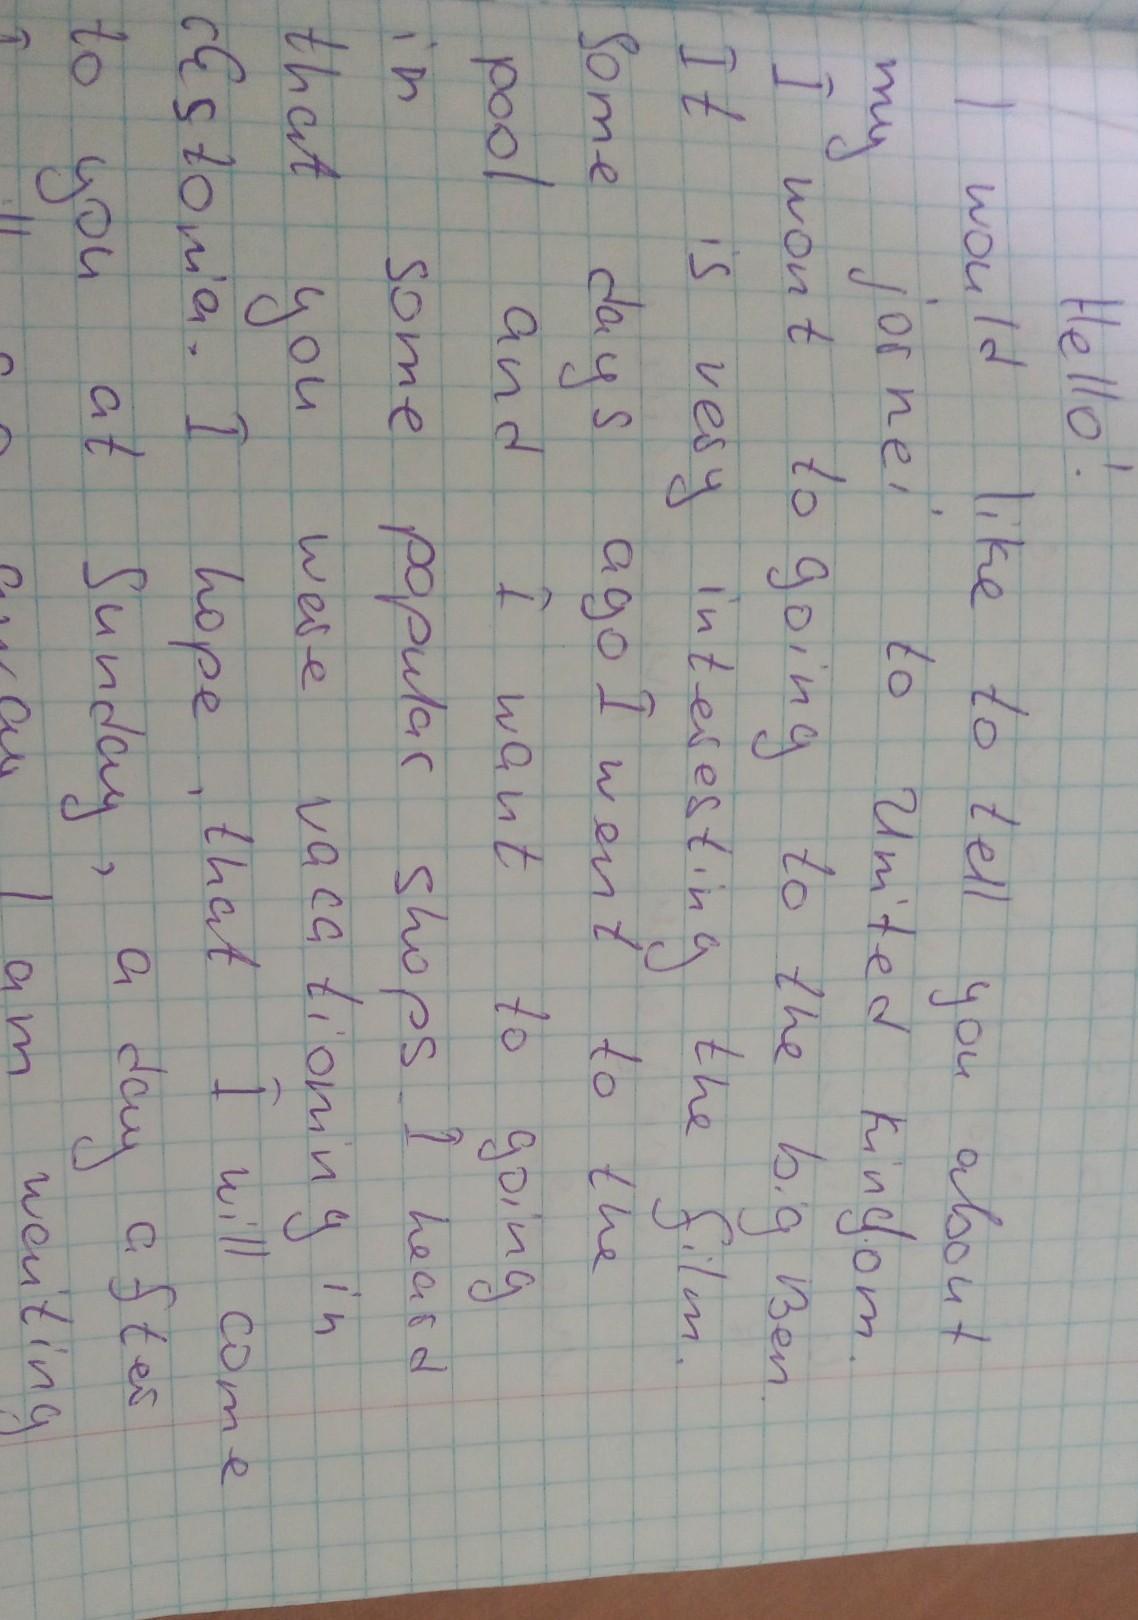 Hello!
I would like to tell you about
my jornei to United Kingdom.
I wont to going to the big Ben.
It is very interesting the film.
Some days ago I went to the
pool and I want to going
in some popular shops. I heard
that you were vacationing in
Estonia. I hope, that I will come
to you at Sunday, a day after
I am waiting